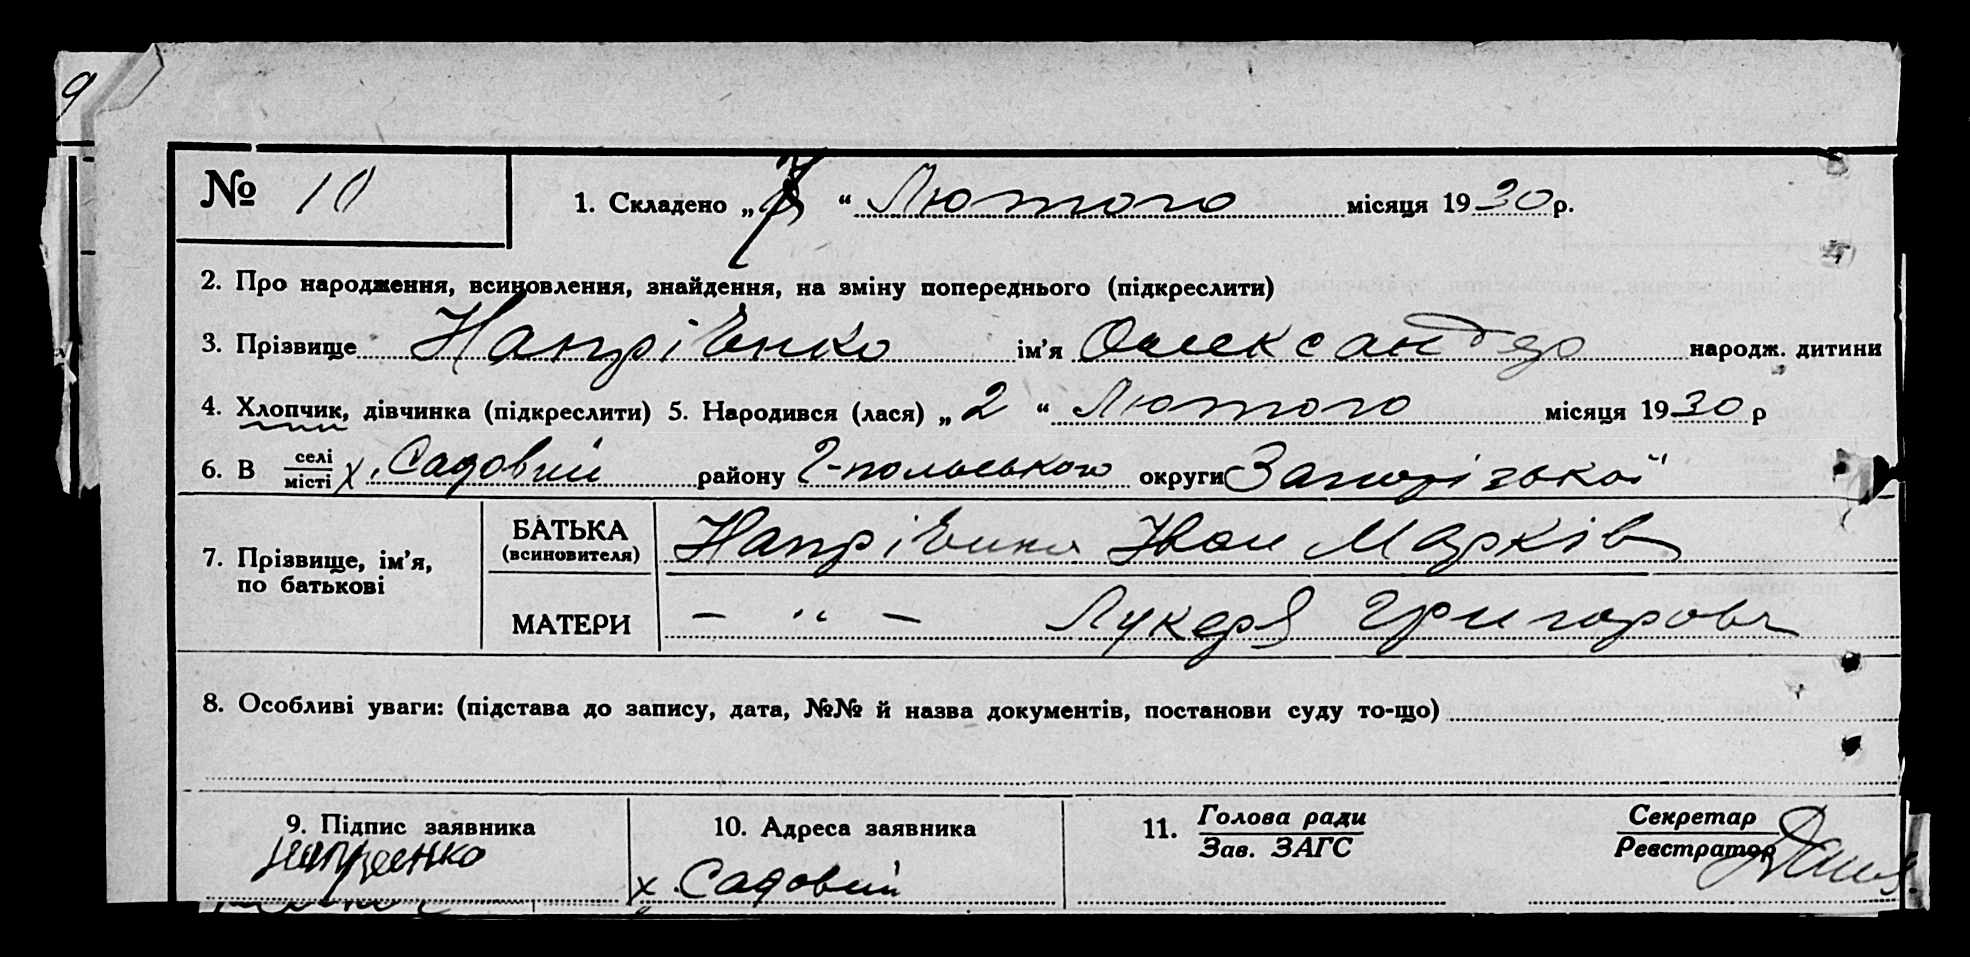 9
№ 10
1. Складено „ “ Лютого місяця 1930 р.
2. Про народження, всиновлення, знайдення, на зміну попереднього (підкреслити)
3. Прізвище Напрієнко ім’я Олександр народж. дитини
4. Хлопчик, дівчинка (підкреслити) 5. Народився (лася) „ 2 “ Лютого місяця 1930 р
6. В селі місті х. Садовий району Г-польського округи Запорізької
7. Прізвище, ім’я, по батькові
БАТЬКА (всиновителя) Напрієнко Іван Марків
МАТЕРИ — „ — Лукеря Григоровн
8. Особливі уваги: (підстава до запису, дата, №№ й назва документів, постанови суду то-що)
9. Підпис заявника 10. Адреса заявника 11. Голова ради Зав. ЗАГС Секретар Реєстратор
Напрієнко х. Садовий